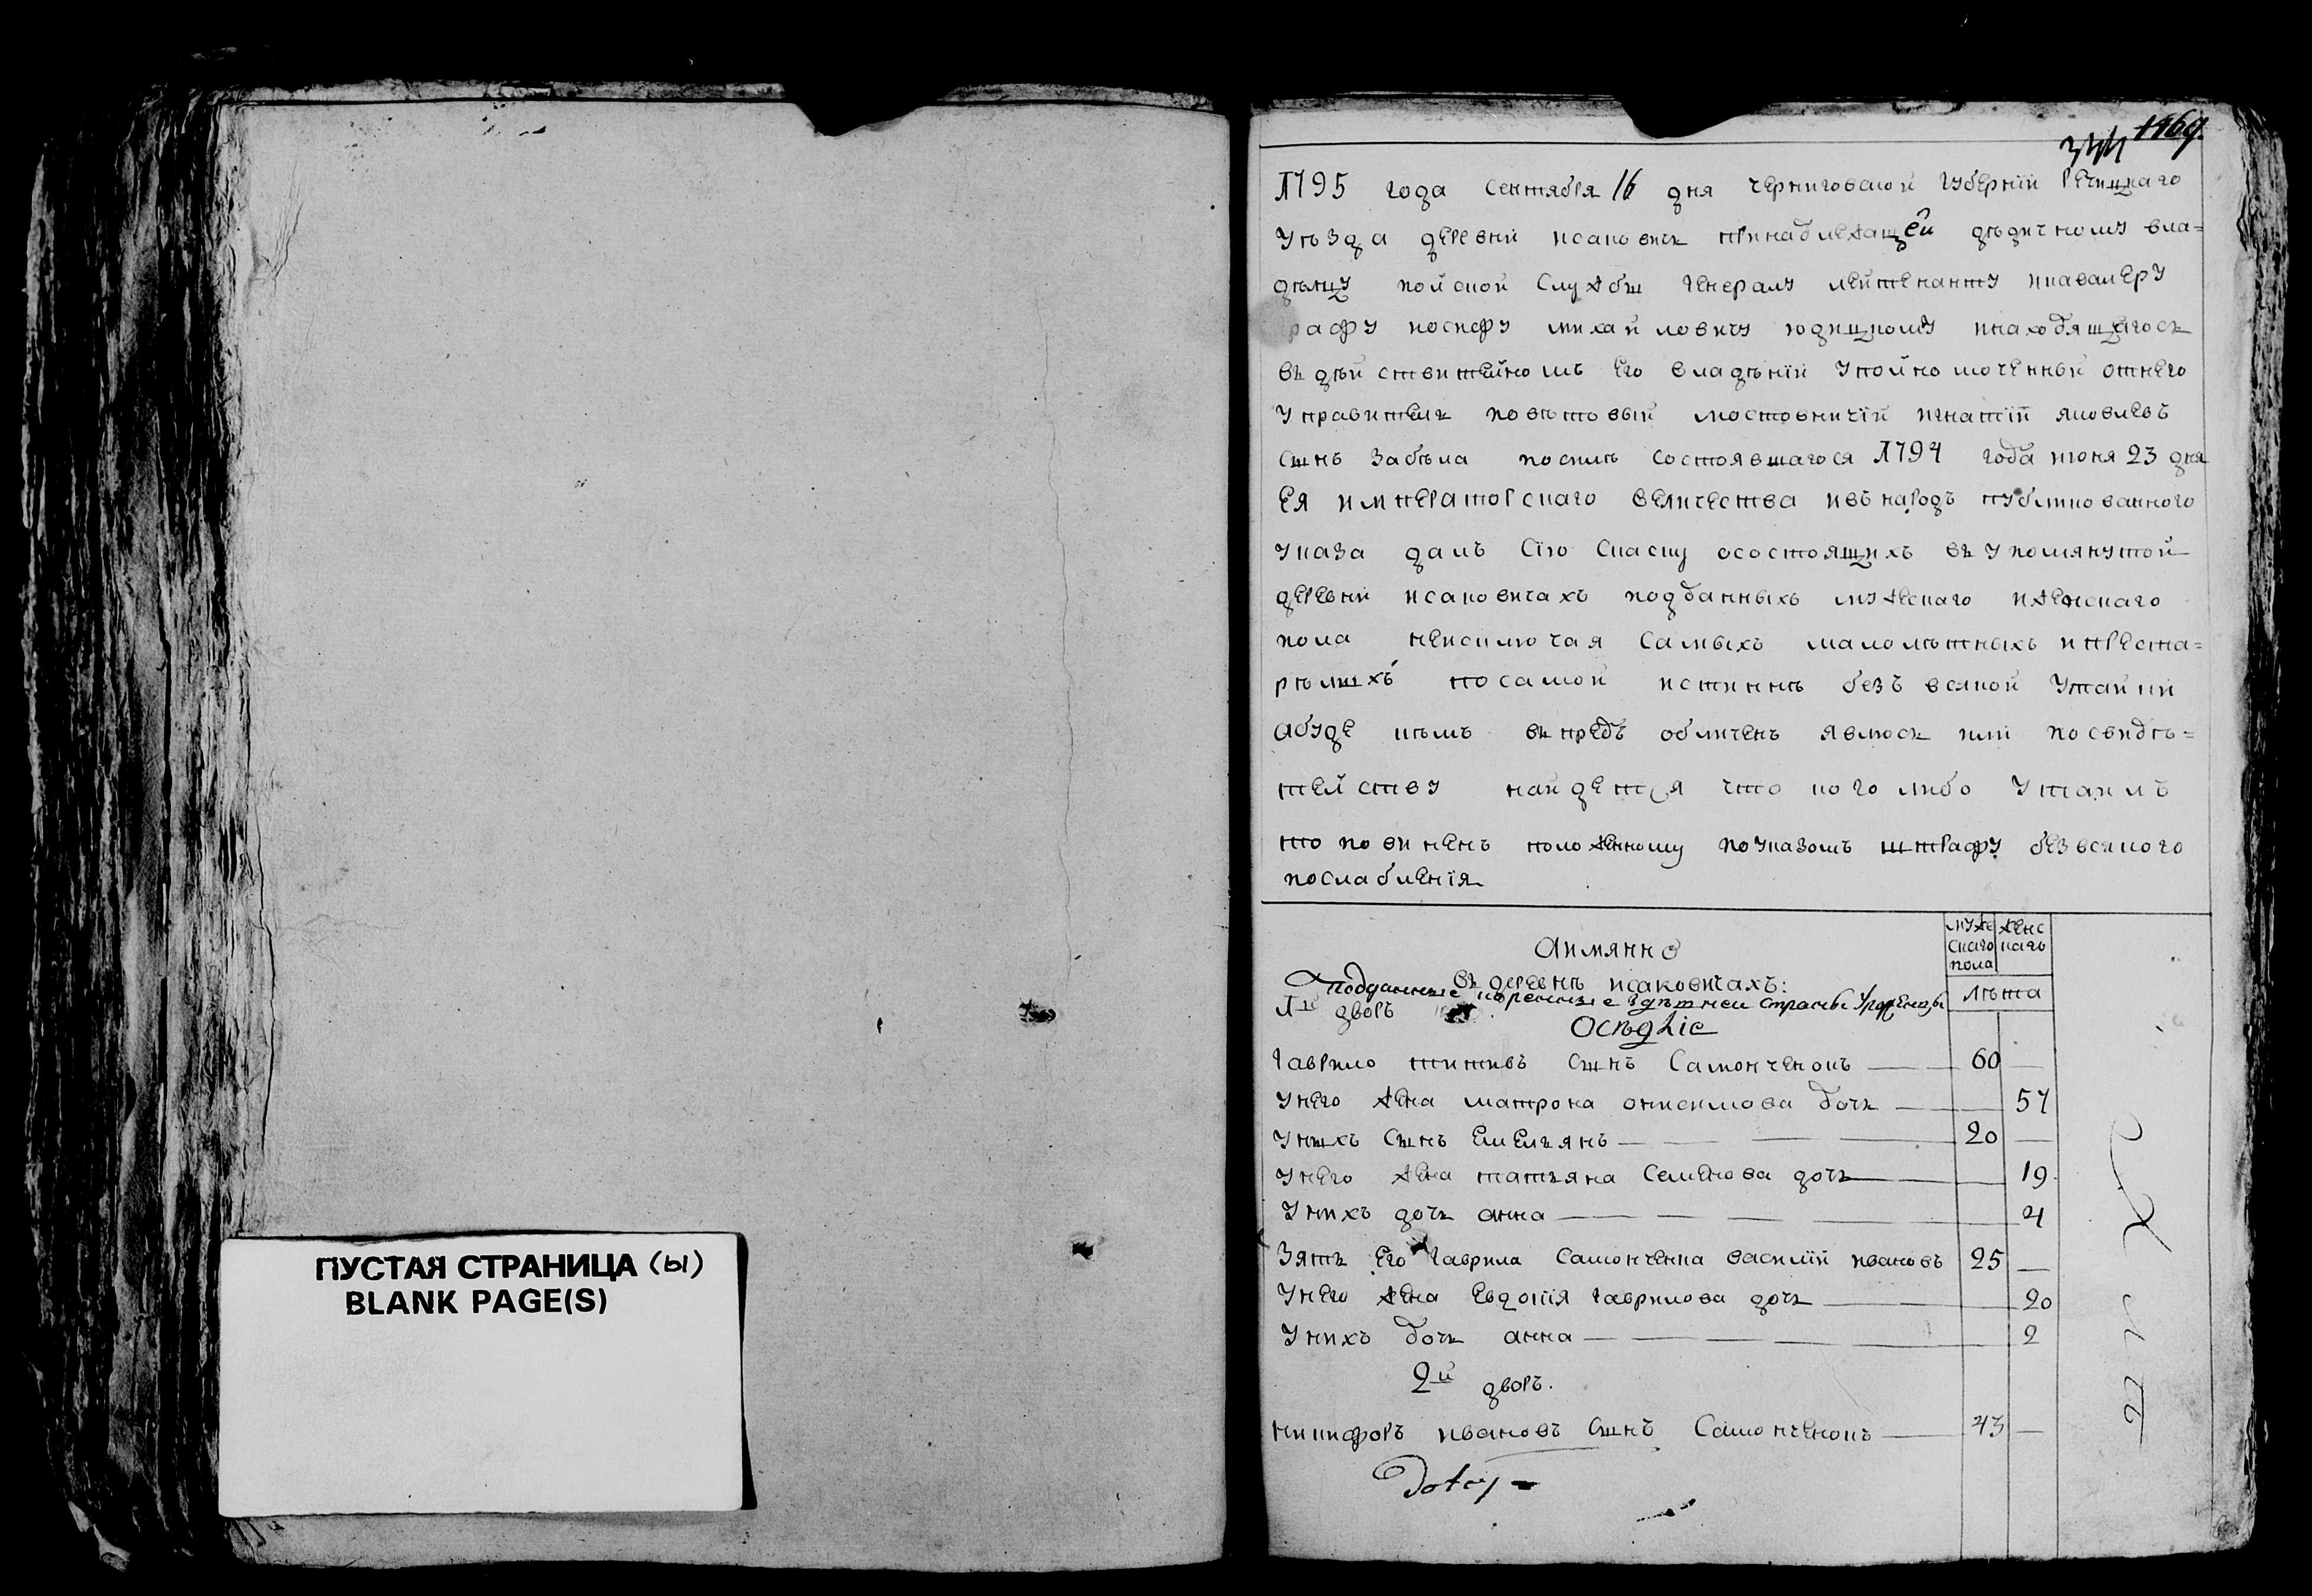 ПУСТАЯ СТРАНИЦА (ы)
BLANK PAGE(S)
1169.
1795 года сентября 16 дня черниговской губернїи речицкаго
уѣзда деревни исаковичь принадлежащей дѣдичному вла=
дѣлцу полской службы генералу лейтенанту икавалеру
графу иосифу михайловичу юдицкому инаходящагось
въ дѣйствителномъ его владѣнїи уполномоченный отнего
управитель повѣтовый мостовничїй игнатїй яковлевъ
сынъ забѣла по силѣ состоявшагося 1794 года июня 23 дня
Ея императорскаго величества ивънародъ публикованного
указа далъ сїю скаску осостоящихъ въ упомянутой
деревни исаковичахъ подданныхъ мужескаго иженскаго
пола неисключая самыхъ малолѣтныхъ ипреста=
рѣлыхъ по самой истиннѣ безъ всякой утайки
абуде кѣмъ впредъ обличенъ явлюсь или по свидѣ=
телству найдется что кого либо утаилъ
то повиненъ положенному поуказомъ штрафу безвсякого
послабленїя
Аимянно
муже
скаго
пола
женс
каго
въ деревнѣ исаковичахъ:
Подданные коренные здѣшнеи страны уроженцы
лѣта
1й дворъ
Осѣдлїе
гаврило титивъ сынъ Самонченокъ 60
унего жена матрона онисимова дочь 57
унихъ сынъ Емельянъ 20
унего жена татьяна семенова дочь 19
унихъ дочь анна 4
зять Его гаврила самонченка василїй ивановъ 25
унего жена Евдокїя гаврилова дочь 20
унихъ дочь анна 2
2й дворъ.
никифоръ ивановъ сынъ Самонченокъ 43